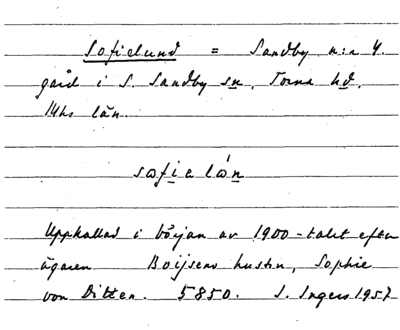 Sofielund = Sandby n:a 4.
gård i S. Sandby sn, Torna hd,
Mhs län.
sofie lón
Uppkallad i början av 1900-talet efter
ägaren Boijsens hustru, Sophie
von Ditten. 5850. S. Ingers 1957